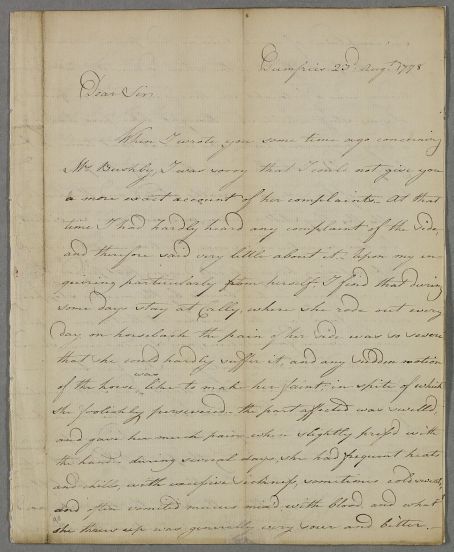 Dumfries 23d. Augt. 1778
Dear Sir
When I wrote you some time ago concerning
Mrs Bushby I was sorry that I could not give you
a more exact account of her complaints. At that
time I had hardly heard any complaint of the side,
and therefore said very little about it. Upon my in
quiring particularly from herself I find that during
some days stay at Cally, where she rode out every
day on horseback the pain of her side was so severe
that she could hardly suffer it, and any sudden motion
of the horse was like to make her faint, in spite of which
she foolishly persevered. the part affected was swelled,
and gave her much pain when slightly press'd with
the hand. during several days, she had frequent heats
and chills, with excessive sickness, sometimes cold sweats,
and often vomited mucus mixed with blood, and what
she threw up was generally very sour and bitter.